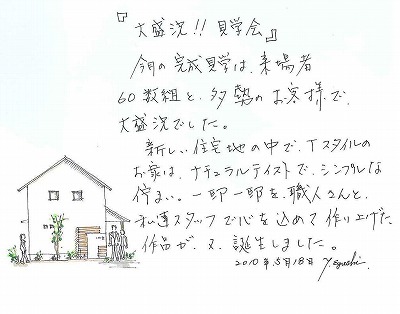 『大盛況!! 見学会』
今月の完成見学は、来場者
60数組と、多勢のお客様で、
大盛況でした。
新しい住宅地の中で、Tスタイルの
お家は、ナチュラルテイストで、シンプルな
佇まい。一邸一邸を、職人さんと、
私達スタッフで心を込めて作り上げた
作品が、又、誕生しました。
2010年5月18日 Y. Eguchi.